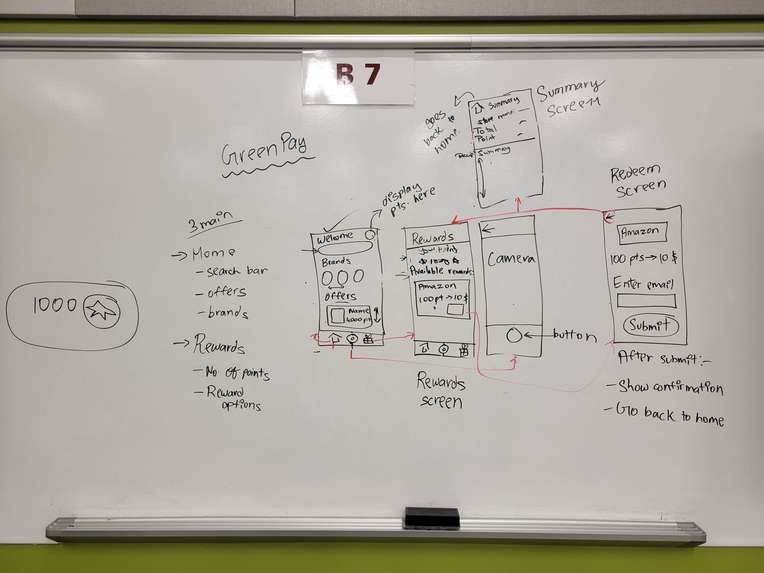 B 7
GreenPay
3 main
→ Home
- search bar
- offers
- brands
→ Rewards
- No. of points
- Reward options
1000
display pts. here
Welcome
Brands
Offers
Name
Rewards
Available rewards
Amazon
100pt → 10$
Rewards screen
Camera
button
goes back to home
Summary
Total
Point
Summary
Summary Screen
Redeem screen
Amazon
100 pts → 10 $
Enter email
Submit
After submit:-
- Show confirmation
- Go back to home